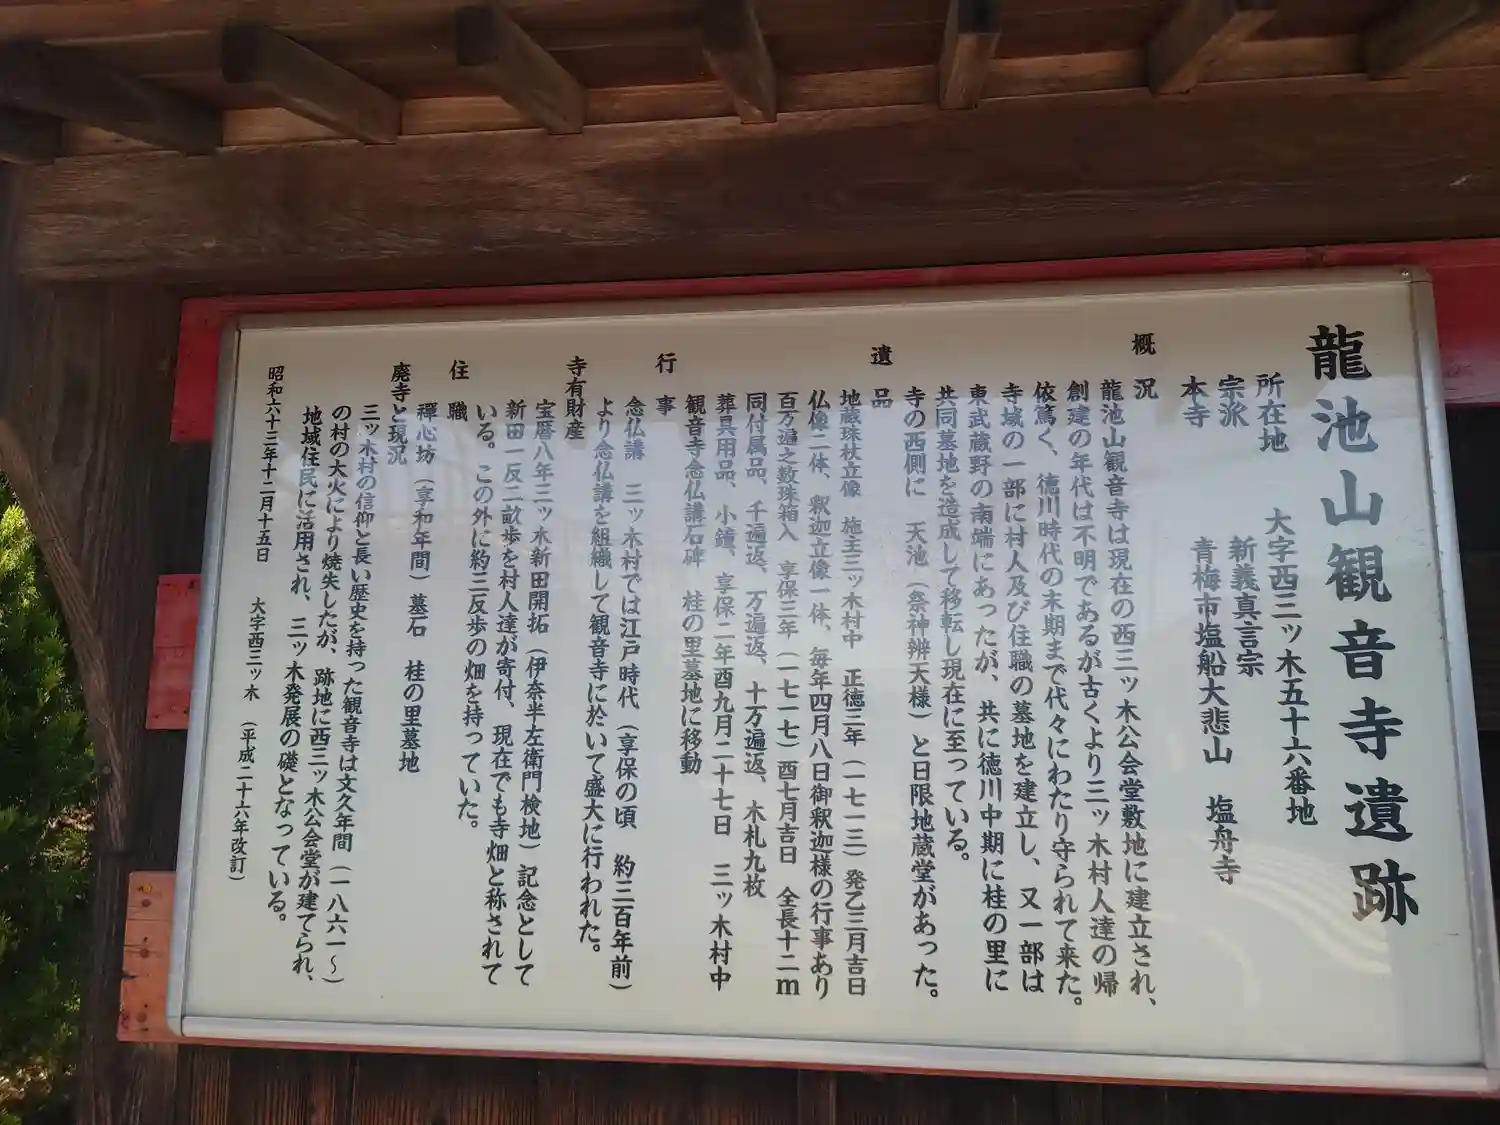 龍池山観音寺遺跡
所在地　大字西三ッ木五十六番地
宗派　新義真言宗
本寺　青梅市塩船大悲山　塩舟寺
概況
龍池山観音寺は現在の西三ッ木公会堂敷地に建立され、
創建の年代は不明であるが古くより三ッ木村人達の帰
依篤く、徳川時代の末期まで代々にわたり守られて来た。
寺域の一部に村人及び住職の墓地を建立し、又一部は
東武蔵野の南端にあったが、共に徳川中期に桂の里に
共同墓地を造成して移転し現在に至っている。
寺の西側に　天池（祭神辨天様）と日限地蔵堂があった。
遺品
地蔵珠杖立像　施主三ッ木村中　正徳三年（一七一三）発乙三月吉日
仏像二体、釈迦立像一体、毎年四月八日御釈迦様の行事あり
百万遍之数珠箱入　享保三年（一七一七）酉七月吉日　全長十二ｍ
同付属品、千遍返、万遍返、十万遍返、木札九枚
葬具用品、小鐘、享保二年酉九月二十七日　三ッ木村中
観音寺念仏講石碑　桂の里墓地に移動
行事
念仏講　三ッ木村では江戸時代（享保の頃　約三百年前）
より念仏講を組織して観音寺に於いて盛大に行われた。
寺有財産
宝暦八年三ッ木新田開拓（伊奈半左衛門検地）記念として
新田一反二畝歩を村人達が寄付、現在でも寺畑と称されて
いる。この外に約三反歩の畑を持っていた。
住職
禪心坊（享和年間）墓石　桂の里墓地
廃寺と現況
三ッ木村の信仰と長い歴史を持った観音寺は文久年間（一八六一～）
の村の大火により焼失したが、跡地に西三ッ木公会堂が建てられ、
地域住民に活用され、三ッ木発展の礎となっている。
昭和六十三年十二月十五日　大字西三ッ木　（平成二十六年改訂）